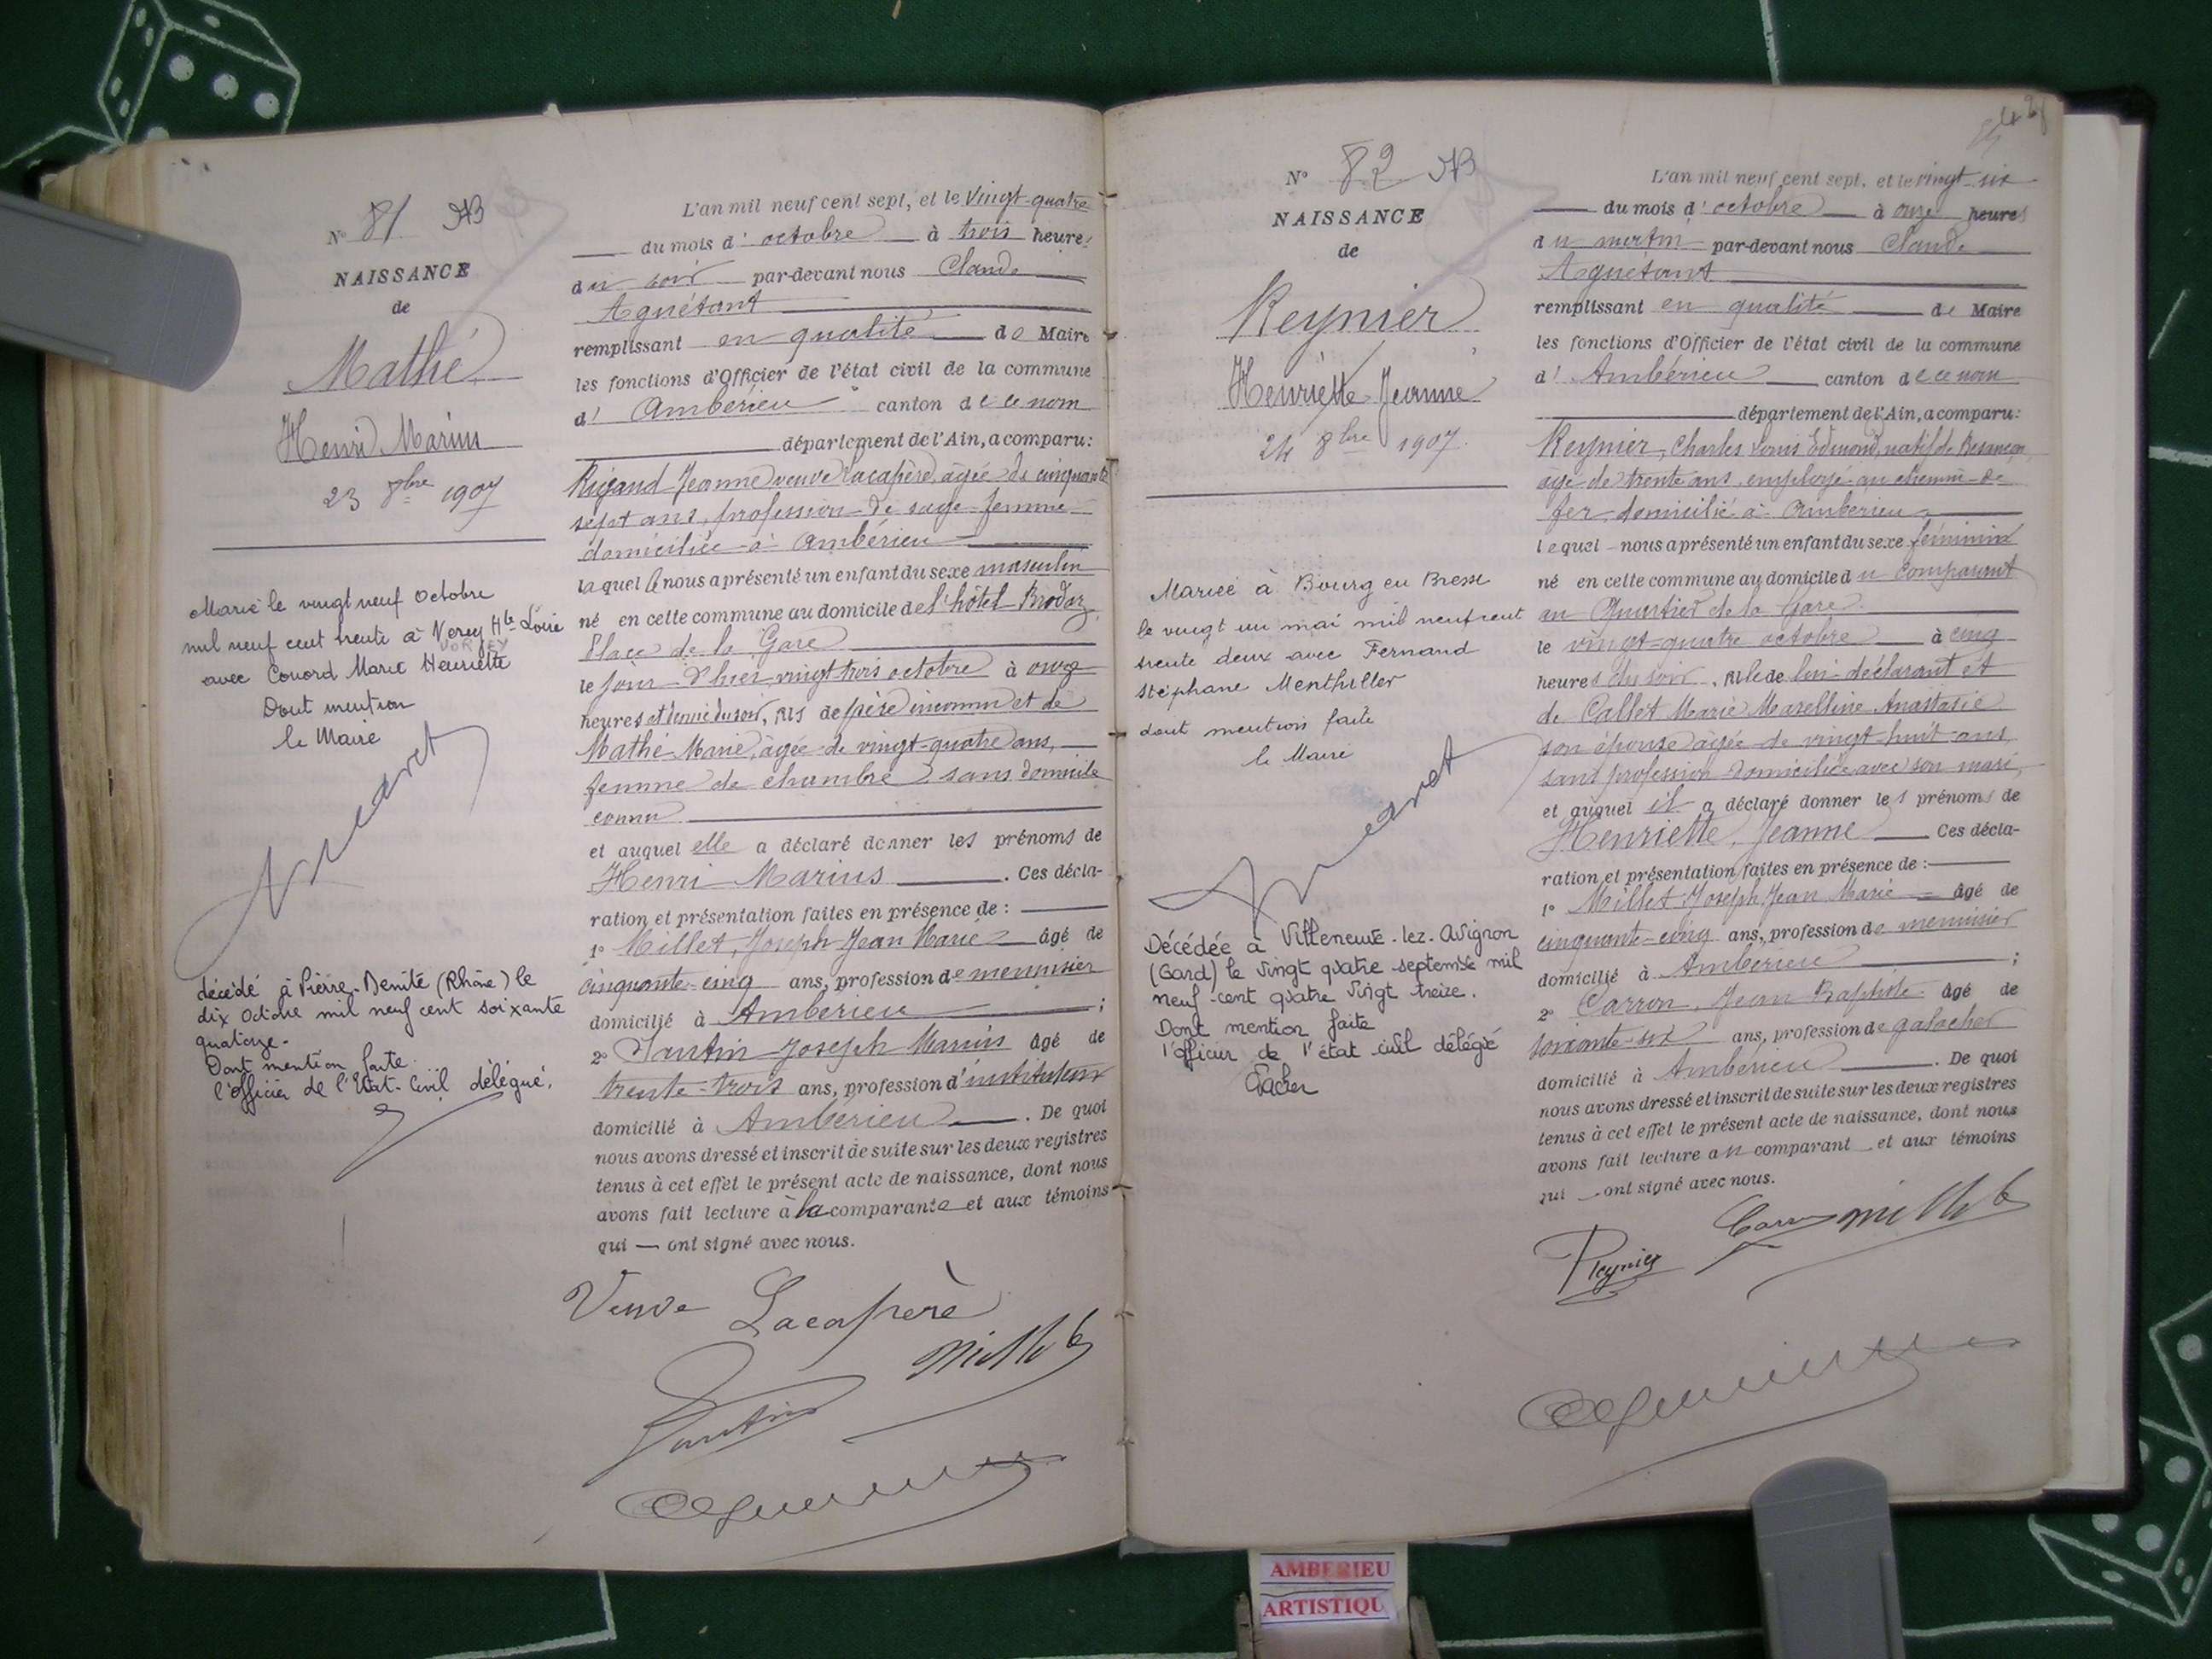 N° 81
NAISSANCE
de
Mathé
Henri Marius
23 8bre 1907
Marié le vingt neuf Octobre
mil neuf cent trente à Vorey Hte Loire
VOREY
avec Couord Marie Henriette
Dont mention
le Maire
décédé à Pierre-Bénite (Rhône) le
dix Octobre mil neuf cent soixante
quatorze.
Dont mention faite
l'officier de l'Etat-Civil délégué.
L'an mil neuf cent sept, et le vingt-quatre
du mois d'octobre à trois heures
du soir par-devant nous Claude
Aguétant
remplissant en qualité de Maire
les fonctions d'Officier de l'état civil de la commune
d'Ambérieu canton de ce nom
département de l'Ain, a comparu:
Rigaud Jeanne veuve Lacapère, âgée de cinquante
sept ans, profession de sage-femme
domiciliée à Ambérieu
laquelle nous a présenté un enfant du sexe masculin
né en cette commune au domicile de l'hôtel Brodaz
Place de la Gare
le jour d'hier vingt trois octobre à onze
heures et demie du soir, fils de père inconnu et de
Mathé Marie, âgée de vingt-quatre ans,
femme de chambre, sans domicile
connu
et auquel elle a déclaré donner les prénoms de
Henri Marius. Ces décla-
ration et présentation faites en présence de :
1° Millet, Joseph Jean Marie âgé de
cinquante-cinq ans, profession de menuisier
domicilié à Ambérieu ;
2° Tantin Joseph Marius âgé de
trente-trois ans, profession d'instituteur
domicilié à Ambérieu. De quoi
nous avons dressé et inscrit de suite sur les deux registres
tenus à cet effet le présent acte de naissance, dont nous
avons fait lecture à la comparante et aux témoins
qui — ont signé avec nous.
Veuve Lacapère
Millet
Tantin
N° 82
NAISSANCE
de
Reynier
Henriette Jeanne
24 8bre 1907.
Mariée à Bourg en Bresse
le vingt un mai mil neuf cent
trente deux avec Fernand
Stéphane Menthiller
dont mention faite
le Maire
Décédée à Villeneuve-lez-Avignon
(Gard) le vingt quatre septembre mil
neuf-cent quatre vingt treize.
Dont mention faite
l'officier de l'état civil délégué
L'an mil neuf cent sept, et le vingt-six
du mois d'octobre à onze heures
du matin par-devant nous Claude
Aguétant
remplissant en qualité de Maire
les fonctions d'Officier de l'état civil de la commune
d'Ambérieu canton de ce nom
département de l'Ain, a comparu:
Reynier, Charles Louis Edmond, natif de Besançon,
âgé de trente ans, employé au chemin de
fer, domicilié à Ambérieu
lequel nous a présenté un enfant du sexe féminin
né en cette commune au domicile du comparant
au Quartier de la Gare
le vingt-quatre octobre à cinq
heures du soir, fille de lui déclarant et
de Callet Marie Marelline Anastasie
son épouse âgée de vingt-huit ans,
sans profession domiciliée avec son mari,
et auquel il a déclaré donner les prénoms de
Henriette, Jeanne. Ces décla-
ration et présentation faites en présence de :
1° Millet Joseph Jean Marie âgé de
cinquante-cinq ans, profession de menuisier
domicilié à Ambérieu ;
2° Carron, Jean Baptiste âgé de
soixante-six ans, profession de galocher
domicilié à Ambérieu. De quoi
nous avons dressé et inscrit de suite sur les deux registres
tenus à cet effet le présent acte de naissance, dont nous
avons fait lecture au comparant et aux témoins
qui — ont signé avec nous.
Reynier
Millet
AMBERIEU
ARTISTIQU